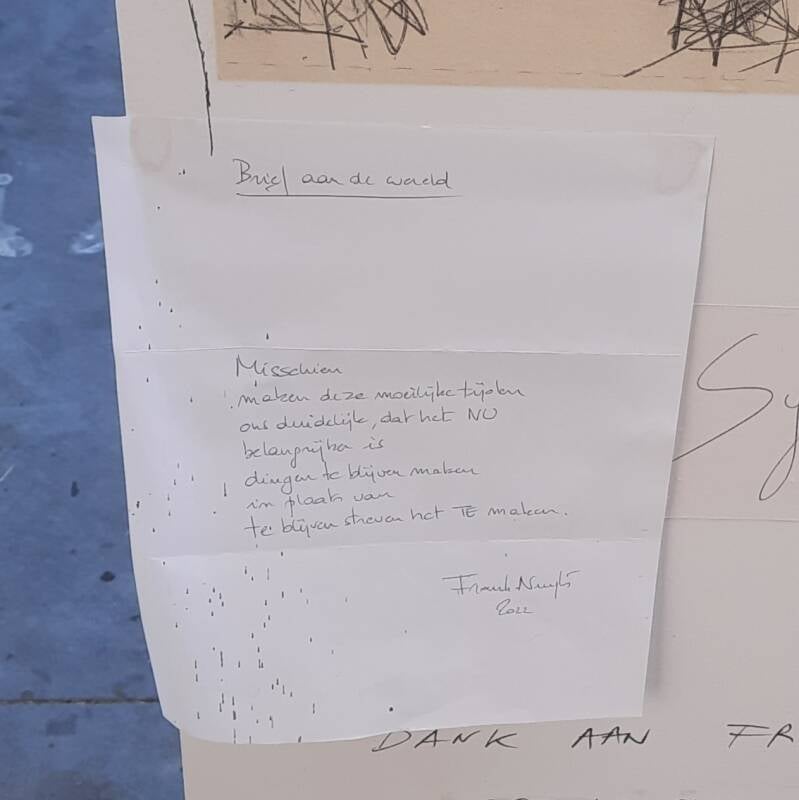 Brief aan de wereld
Misschien
maken deze moeilijke tijden
ons duidelijk, dat het NU
belangrijker is
dingen te blijven maken
in plaats van
te blijven streven het TE maken.
Frank Nuyts
2022
Sy
DANK AAN FR